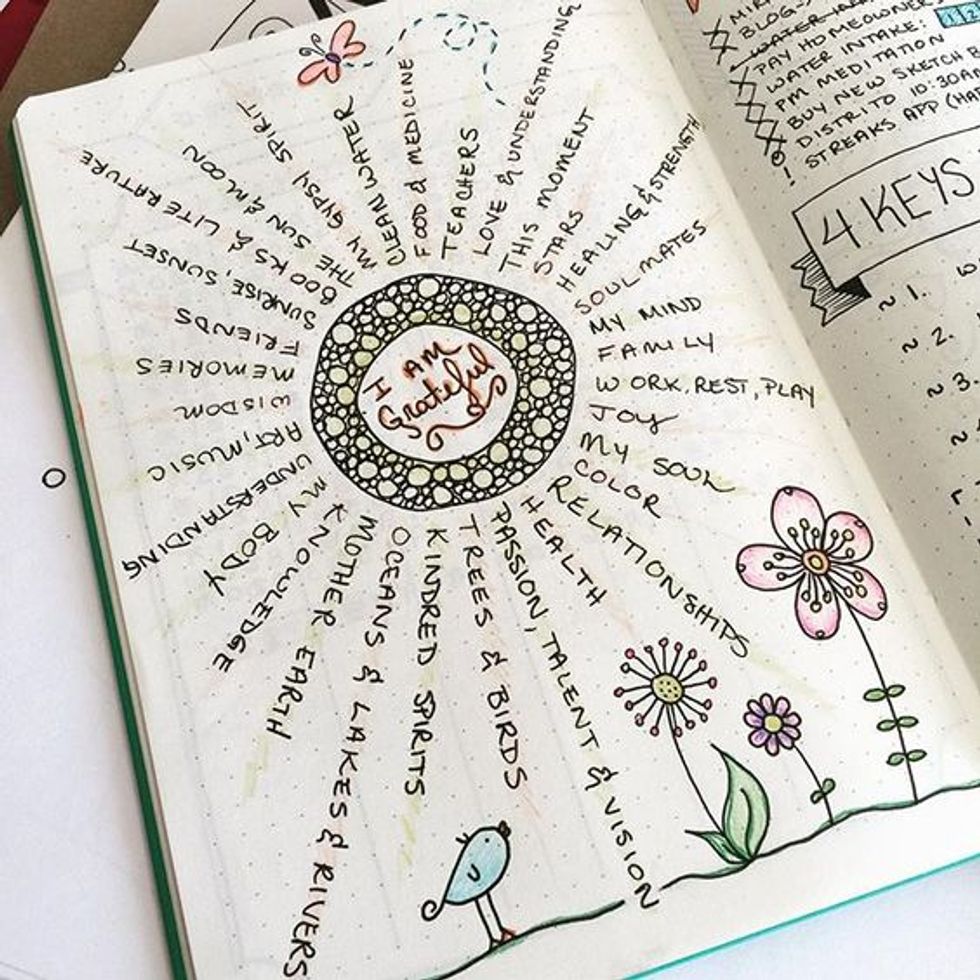 I AM
Grateful
CLEAN WATER
FOOD & MEDICINE
TEACHERS
LOVE & UNDERSTANDING
THIS MOMENT
STARS
HEALING & STRENGTH
SOULMATES
MY MIND
FAMILY
WORK, REST, PLAY
JOY
MY SOUL
COLOR
RELATIONSHIPS
HEALTH
PASSION, TALENT & VISION
TREES & BIRDS
KINDRED SPIRITS
OCEANS & LAKES & RIVERS
MOTHER EARTH
KNOWLEDGE
MY BODY
UNDERSTANDING
ART, MUSIC
WISDOM
MEMORIES
FRIENDS
SUNRISE, SUNSET
BOOKS & LITERATURE
THE SUN & MOON
MY GYPSY SPIRIT
BLOG
PAY HOMEOWNERS
WATER INTAKE:
PM MEDITATION
BUY NEW SKETCH
DISTRITO 10:30AM
! STREAKS APP
4 KEYS
~ 1.
~ 2.
~ 3.